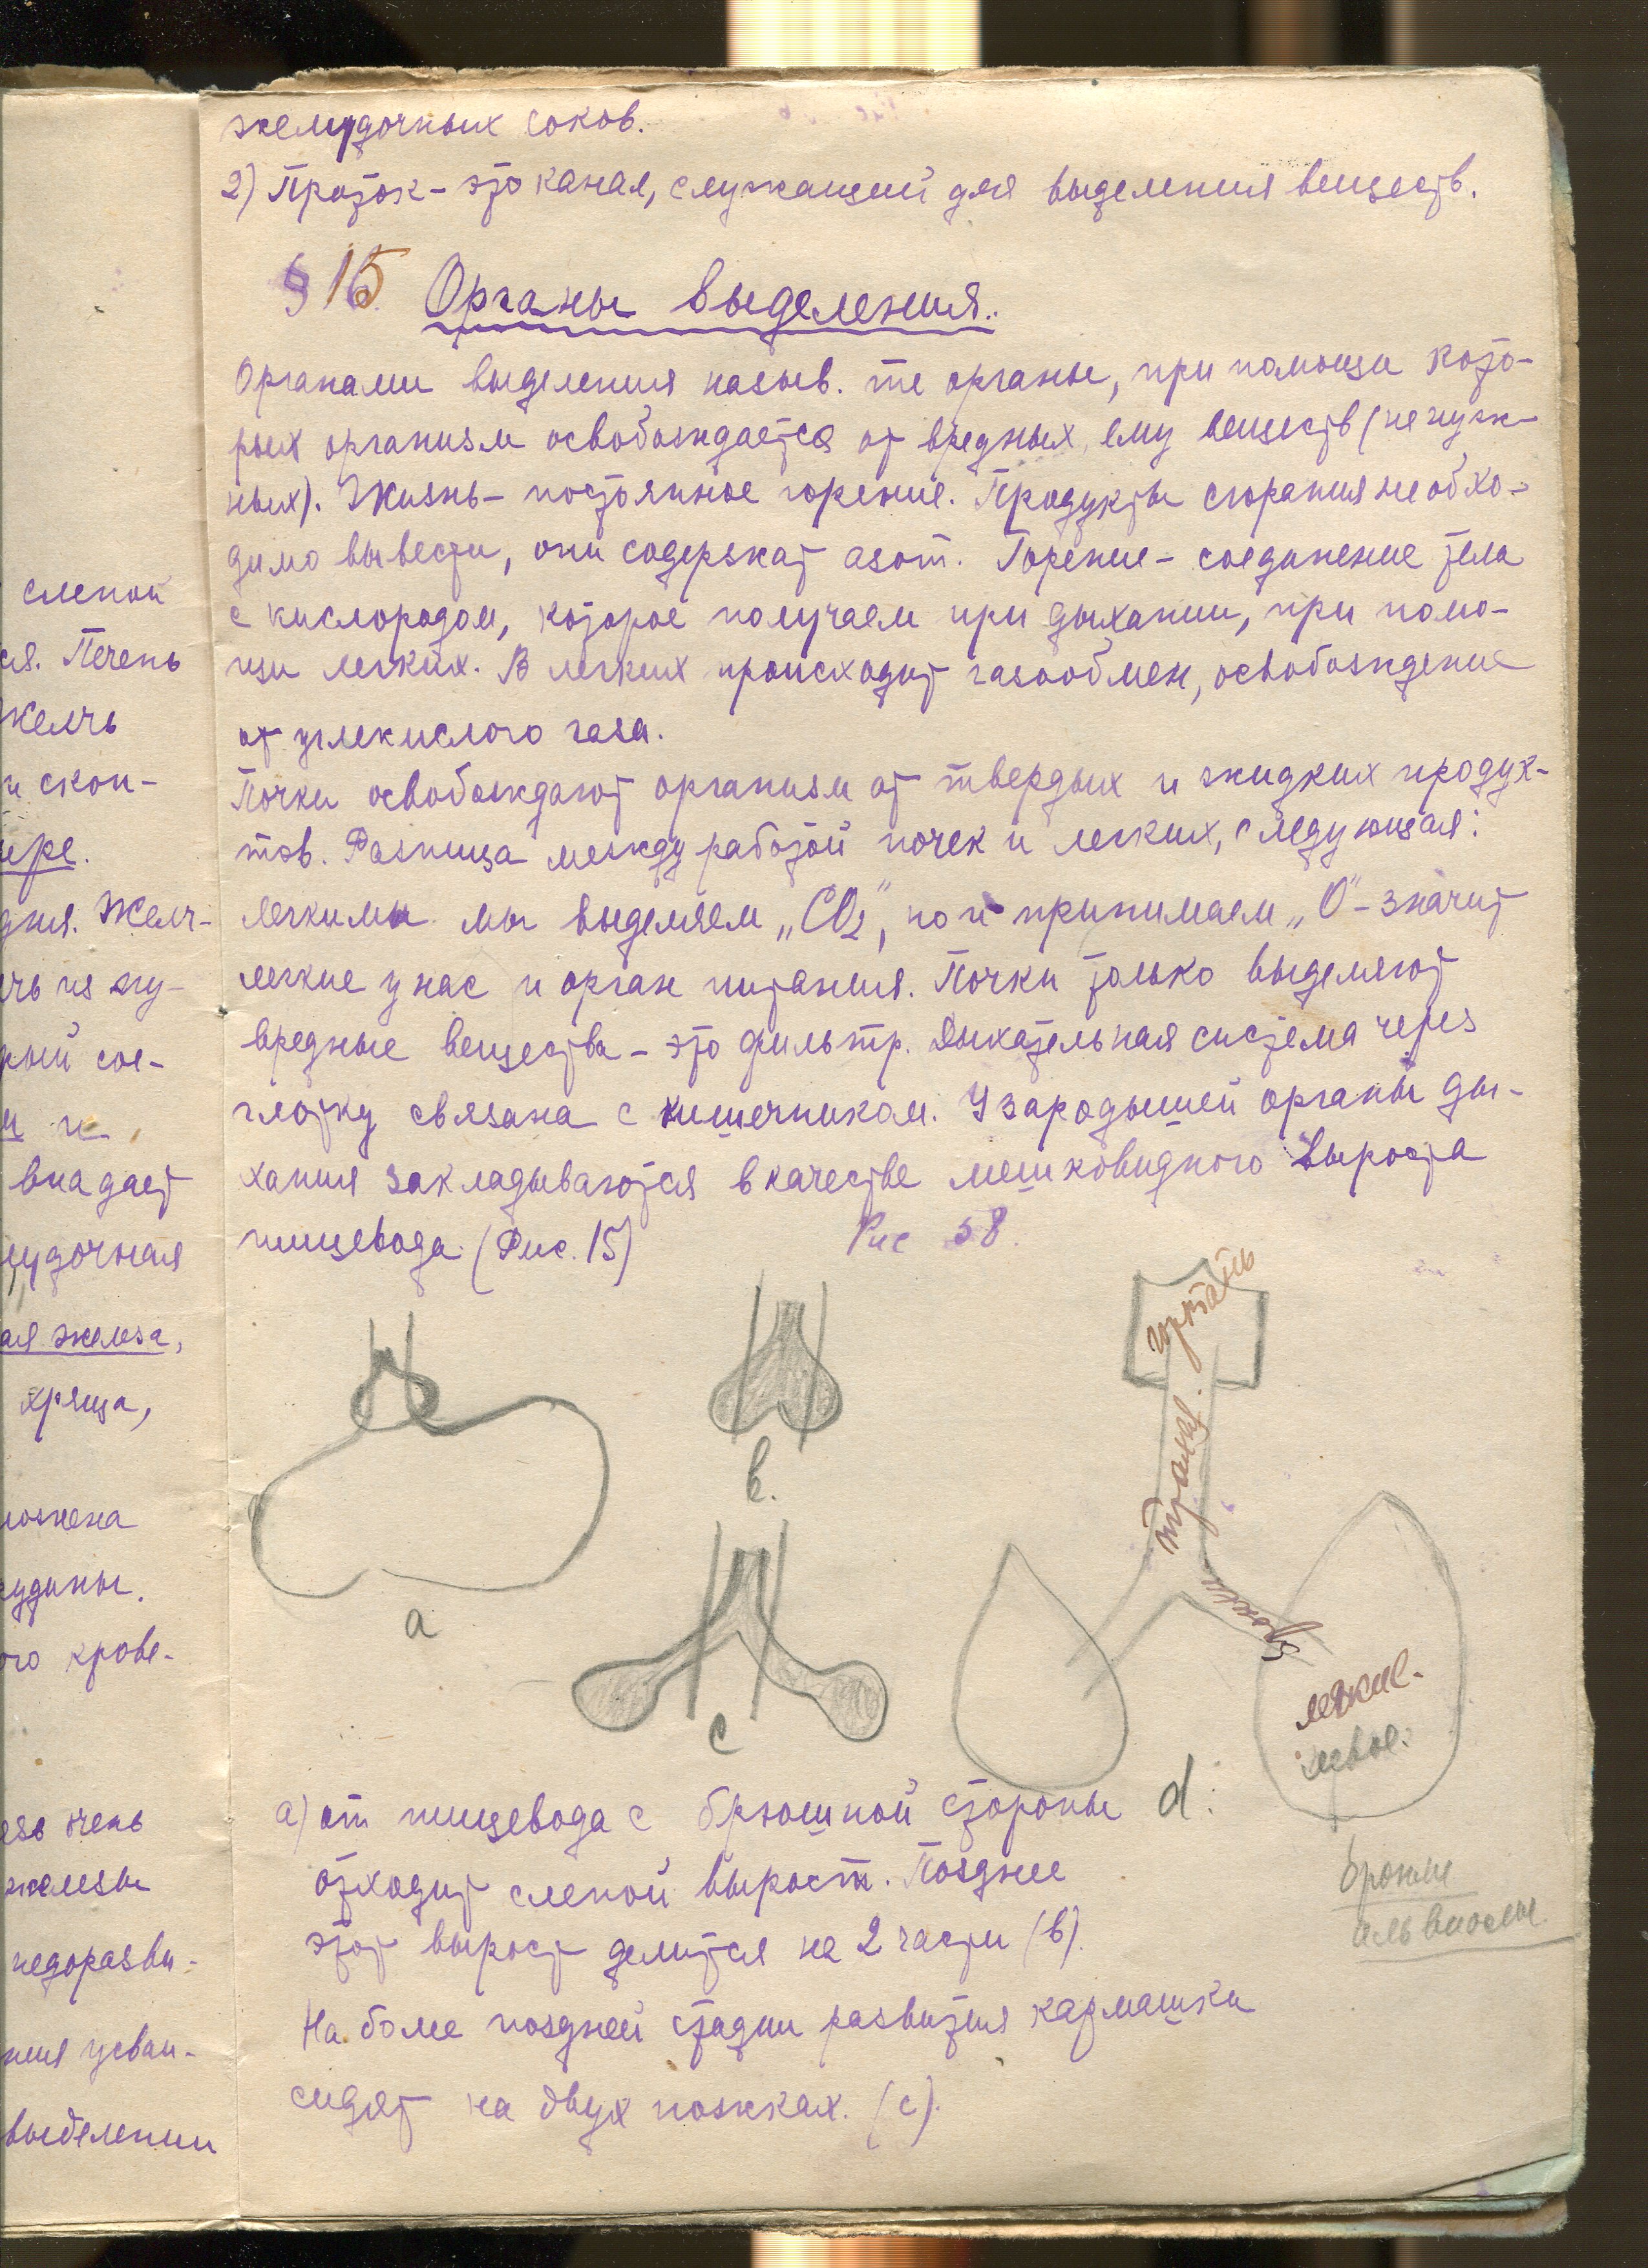 слепой
ся. Печень
желчь
и скоп-
ире.
дня. Желч-
чь из жу-
рый сое-
и и
впадает
лудочная
ая железа,
хряща,
ложена
рудины.
ого крове-
езь очень
железы
недоразви-
ния усваи-
выделении
желудочных соков.
2) Проток - это канал, служащий для выделения веществ.
§ 15 Органы выделения.
Органами выделения назыв. те органы, при помощи кото-
рых организм освобождается от вредных ему веществ (не нуж-
ных). Жизнь - постоянное горение. Продукты сгорания необхо-
димо вывести, они содержат азот. Горение - соединение тела
с кислородом, которое получаем при дыхании, при помо-
щи легких. В легких происходит газообмен, освобождение
от углекислого газа.
Почки освобождают организм от твердых и жидких продук-
тов. Разница между работой почек и легких, следующая:
легкими мы выделяем „CO₂", но и принимаем „O" - значит
легкие у нас и орган питания. Почки только выделяют
вредные вещества - это фильтр. Дыхательная система через
глотку связана с кишечником. У зародышей органы ды-
хания закладываются в качестве мешковидного выроста
пищевода. (Рис. 15) Рис 58.
гортань
трахея.
бронхи
легкие.
левое.
a
b.
c
d.
бронхи
альвиолы
а) от пищевода с брюшной стороны
отходит слепой вырост. Позднее
этот вырост делится на 2 части (в).
На боле поздней стадии развития кармашки
сидят на двух ножках. (с).